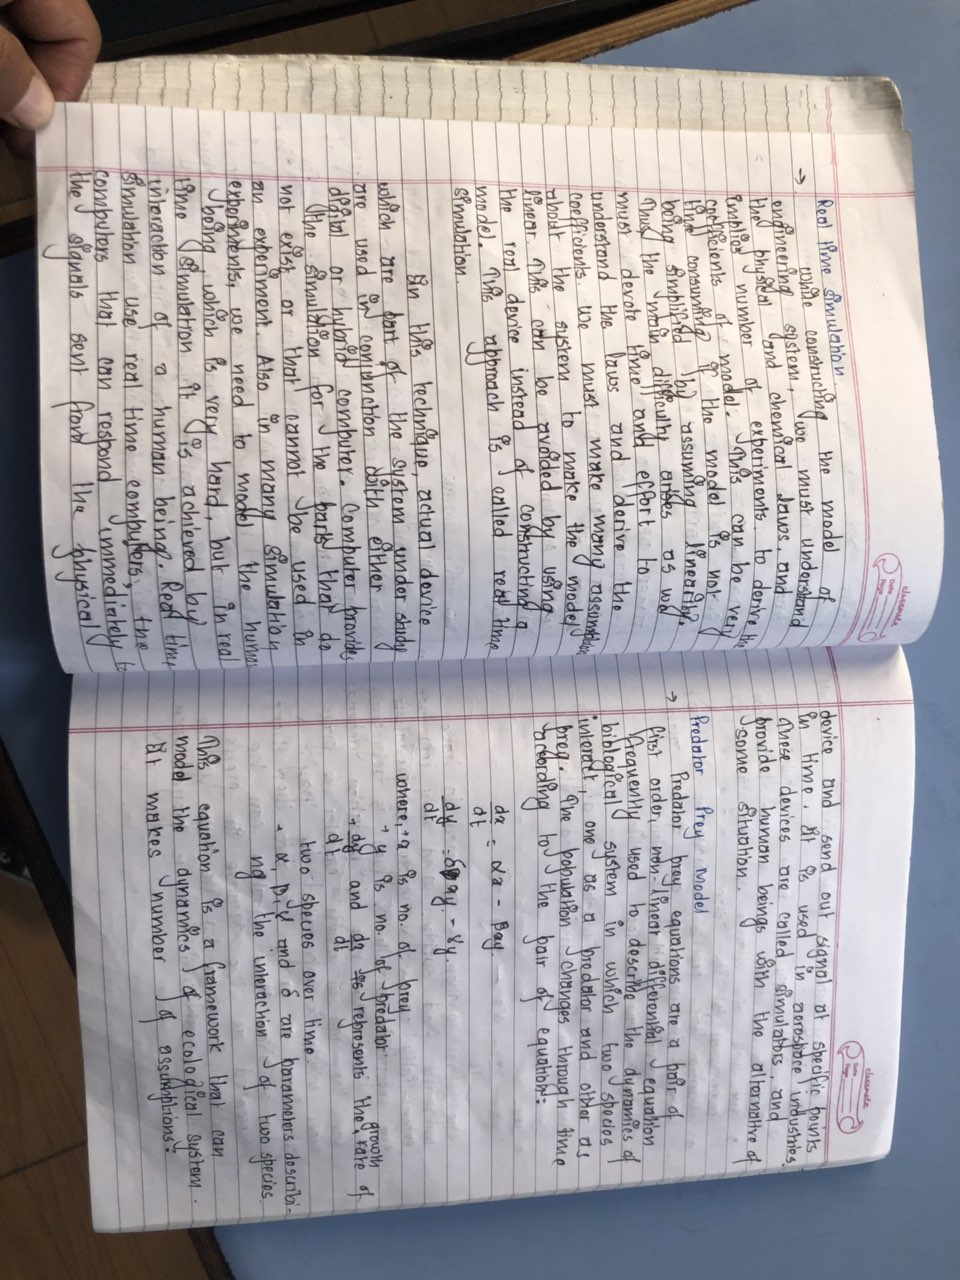 classmate
Date
Page
Real time simulation
→ While constructing the model of
engineering system, we must understand
the physical and chemical laws, and
implied number of experiments to derive the
coefficients of model. This can be very
time consuming if the model is not
being simplified by assuming linearity.
Thus the main difficulty arises as we
must devote time and effort to
understand the laws and derive the
coefficients. We must make many assumptions
about the system to make the model
linear. This can be avoided by using
the real device instead of constructing a
model. This approach is called real time
simulation.
In this technique, actual device
which are part of the system under study
are used in conjunction with either
digital or hybrid computer. Computer provides
the simulation for the parts that do
not exist or that cannot be used in
an experiment. Also in many simulation
experiments, we need to model the human
being which is very hard, but in real
time simulation it is achieved by
interaction of a human being. Real time
simulation use real time computers, the
computers that can respond immediately to
the signals sent from the physical
classmate
Date
Page
device and send out signal at specific points
in time. It is used in aerospace industries.
These devices are called simulators and
provide human beings with the alternative of
some situation.
Predator Prey Model
→ Predator prey equations are a pair of
first order, non-linear differential equation
frequently used to describe the dynamics of
biological system in which two species
interact, one as a predator and other as
prey. The population changes through time
according to the pair of equation:-
dx/dt = αx - βxy
dy/dt = δxy - γy
where, → x is no. of prey
→ y is no. of predator
→ dy/dt and dx/dt represents the growth rate of
two species over time
→ α, β, γ and δ are parameters describi-
ng the interaction of two species.
This equation is a framework that can
model the dynamics of ecological system.
It makes number of assumptions: